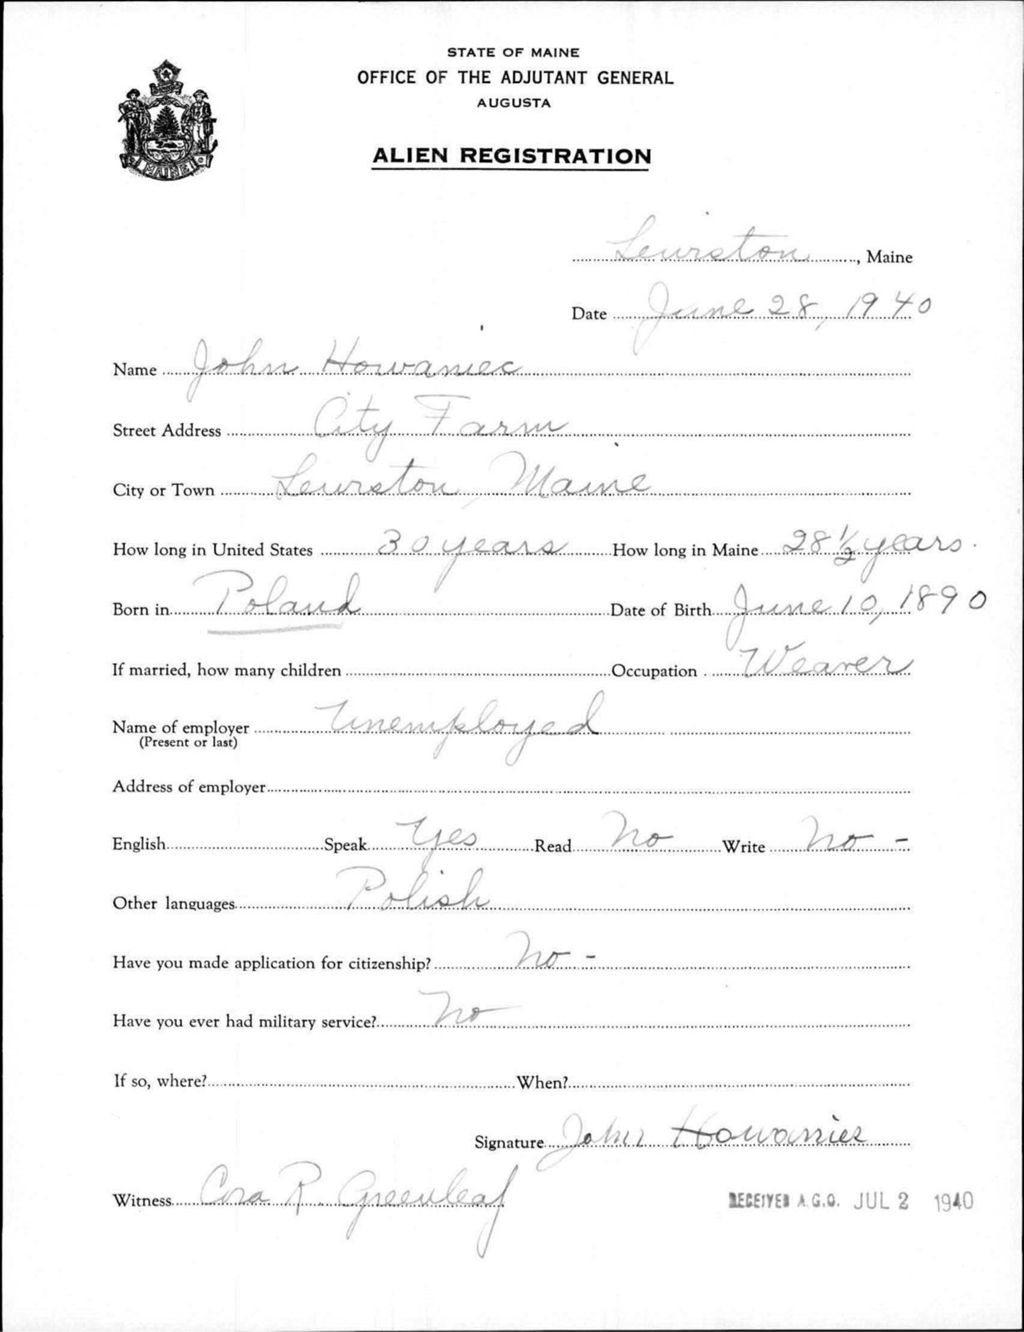 STATE OF MAINE
OFFICE OF THE ADJUTANT GENERAL
AUGUSTA
MAINE
ALIEN REGISTRATION
Lewiston, Maine
Date June 28, 1940
Name John Howaniec
Street Address City Farm
City or Town Lewiston Maine
How long in United States 30 years How long in Maine 28 ½ years.
Born in Poland Date of Birth June 10, 1890
If married, how many children Occupation Weaver
Name of employer Unemployed
(Present or last)
Address of employer
English Speak Yes Read No Write No -
Other languages Polish
Have you made application for citizenship? No -
Have you ever had military service? No
If so, where? When?
Signature John Howaniec
Witness Cora R. Greenleaf RECEIVED A.G.O. JUL 2 1940